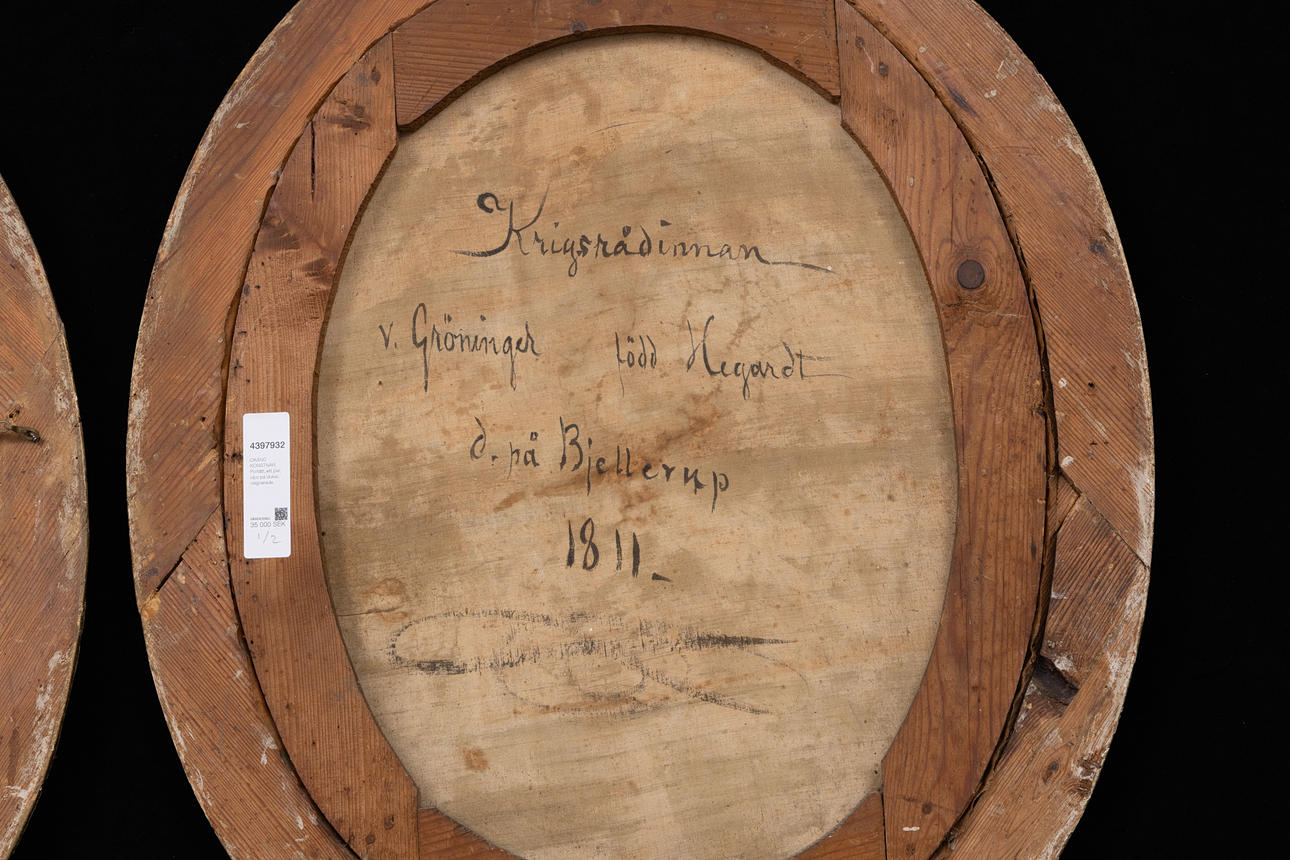 Krigsrådinnan
v. Gröninger född Hegardt
d. på Bjellerup
1811_
4397932
OKÄND
KONSTNÄR,
Porträtt, ett par,
olja på duk,
osignerade.
35 000 SEK
1/2